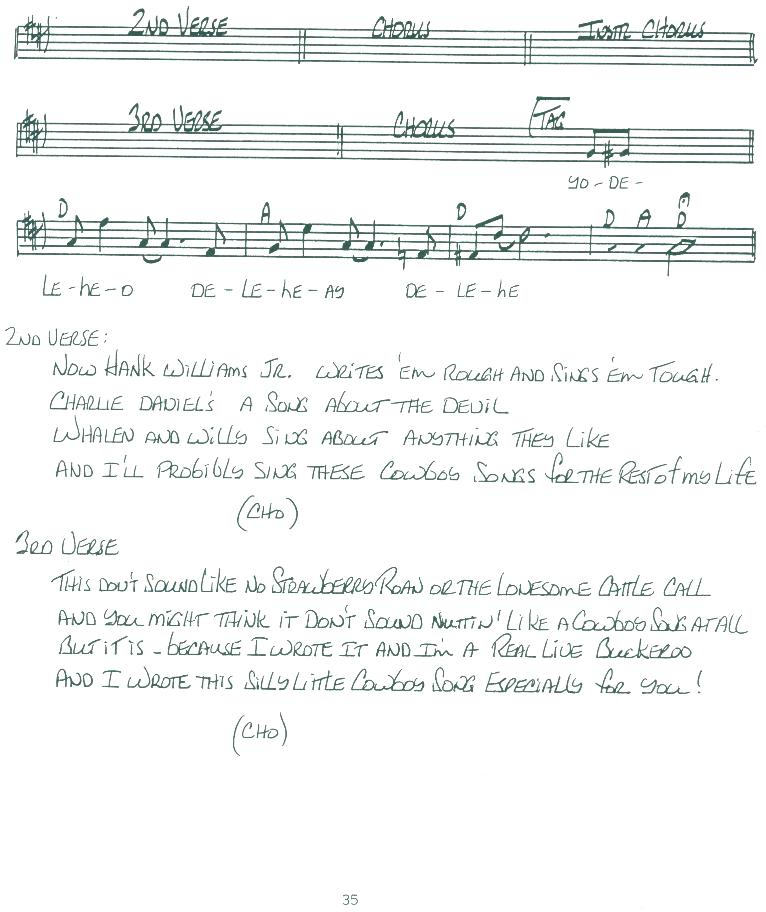 2ND VERSE CHORUS INSTR CHORUS
3RD VERSE CHORUS TAG
YO - DE -
D A D D A D
LE - hE - O DE - LE - hE - AY DE - LE - hE
2ND VERSE:
NOW HANK WILLIAMS JR. WRITES 'EM ROUGH AND SINGS 'EM TOUGH.
CHARLIE DANIEL'S A SONG ABOUT THE DEVIL
WHALEN AND WILLY SING ABOUT ANYTHING THEY LIKE
AND I'LL PROBIBLY SING THESE COWBOY SONGS FOR THE REST OF MY LIFE
(CHO)
3RD VERSE
THIS DON'T SOUND LIKE NO STRAWBERRY ROAN OR THE LONESOME CATTLE CALL
AND YOU MIGHT THINK IT DON'T SOUND NUTTIN' LIKE A COWBOY SONG AT ALL
BUT IT IS - BECAUSE I WROTE IT AND I'M A REAL LIVE BUCKEROO
AND I WROTE THIS SILLY LITTLE COWBOY SONG ESPECIALLY FOR YOU!
(CHO)
35